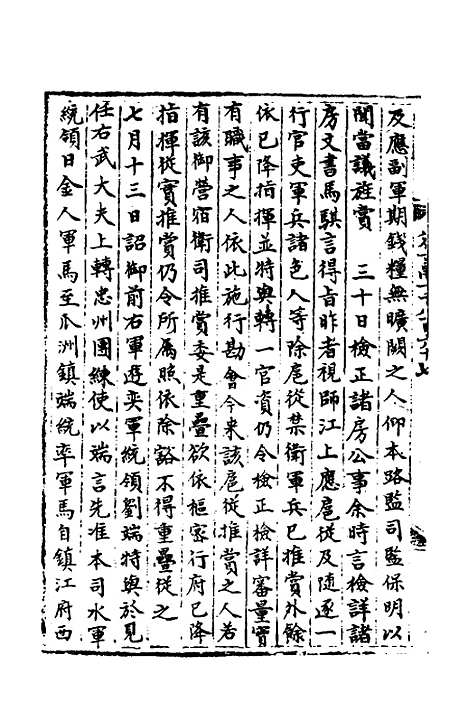 及應副軍期錢糧無曠闕之人仰本路監司監保明以
聞當議旌賞　三十日檢正諸房公事余時言檢詳諸
房文書馬騏言得旨昨者視師江上應扈從及隨逐一
行官吏軍兵諸色人等除扈從禁衛軍兵已推賞外餘
依已降指揮並特與轉一官資仍令檢正檢詳審量實
有職事之人依此施行勘會今來該扈從推賞之人若
有該御營宿衛司推賞委是重疊欲依樞密行府已降
指揮從實推賞仍令所屬照依除豁不得重疊從之
七月十三日詔御前右軍遊奕軍統領劉端特與於見
任右武大夫上轉忠州團練使以端言先准本司水軍
統領日金人軍馬至瓜洲鎮端統率軍馬自鎮江府西